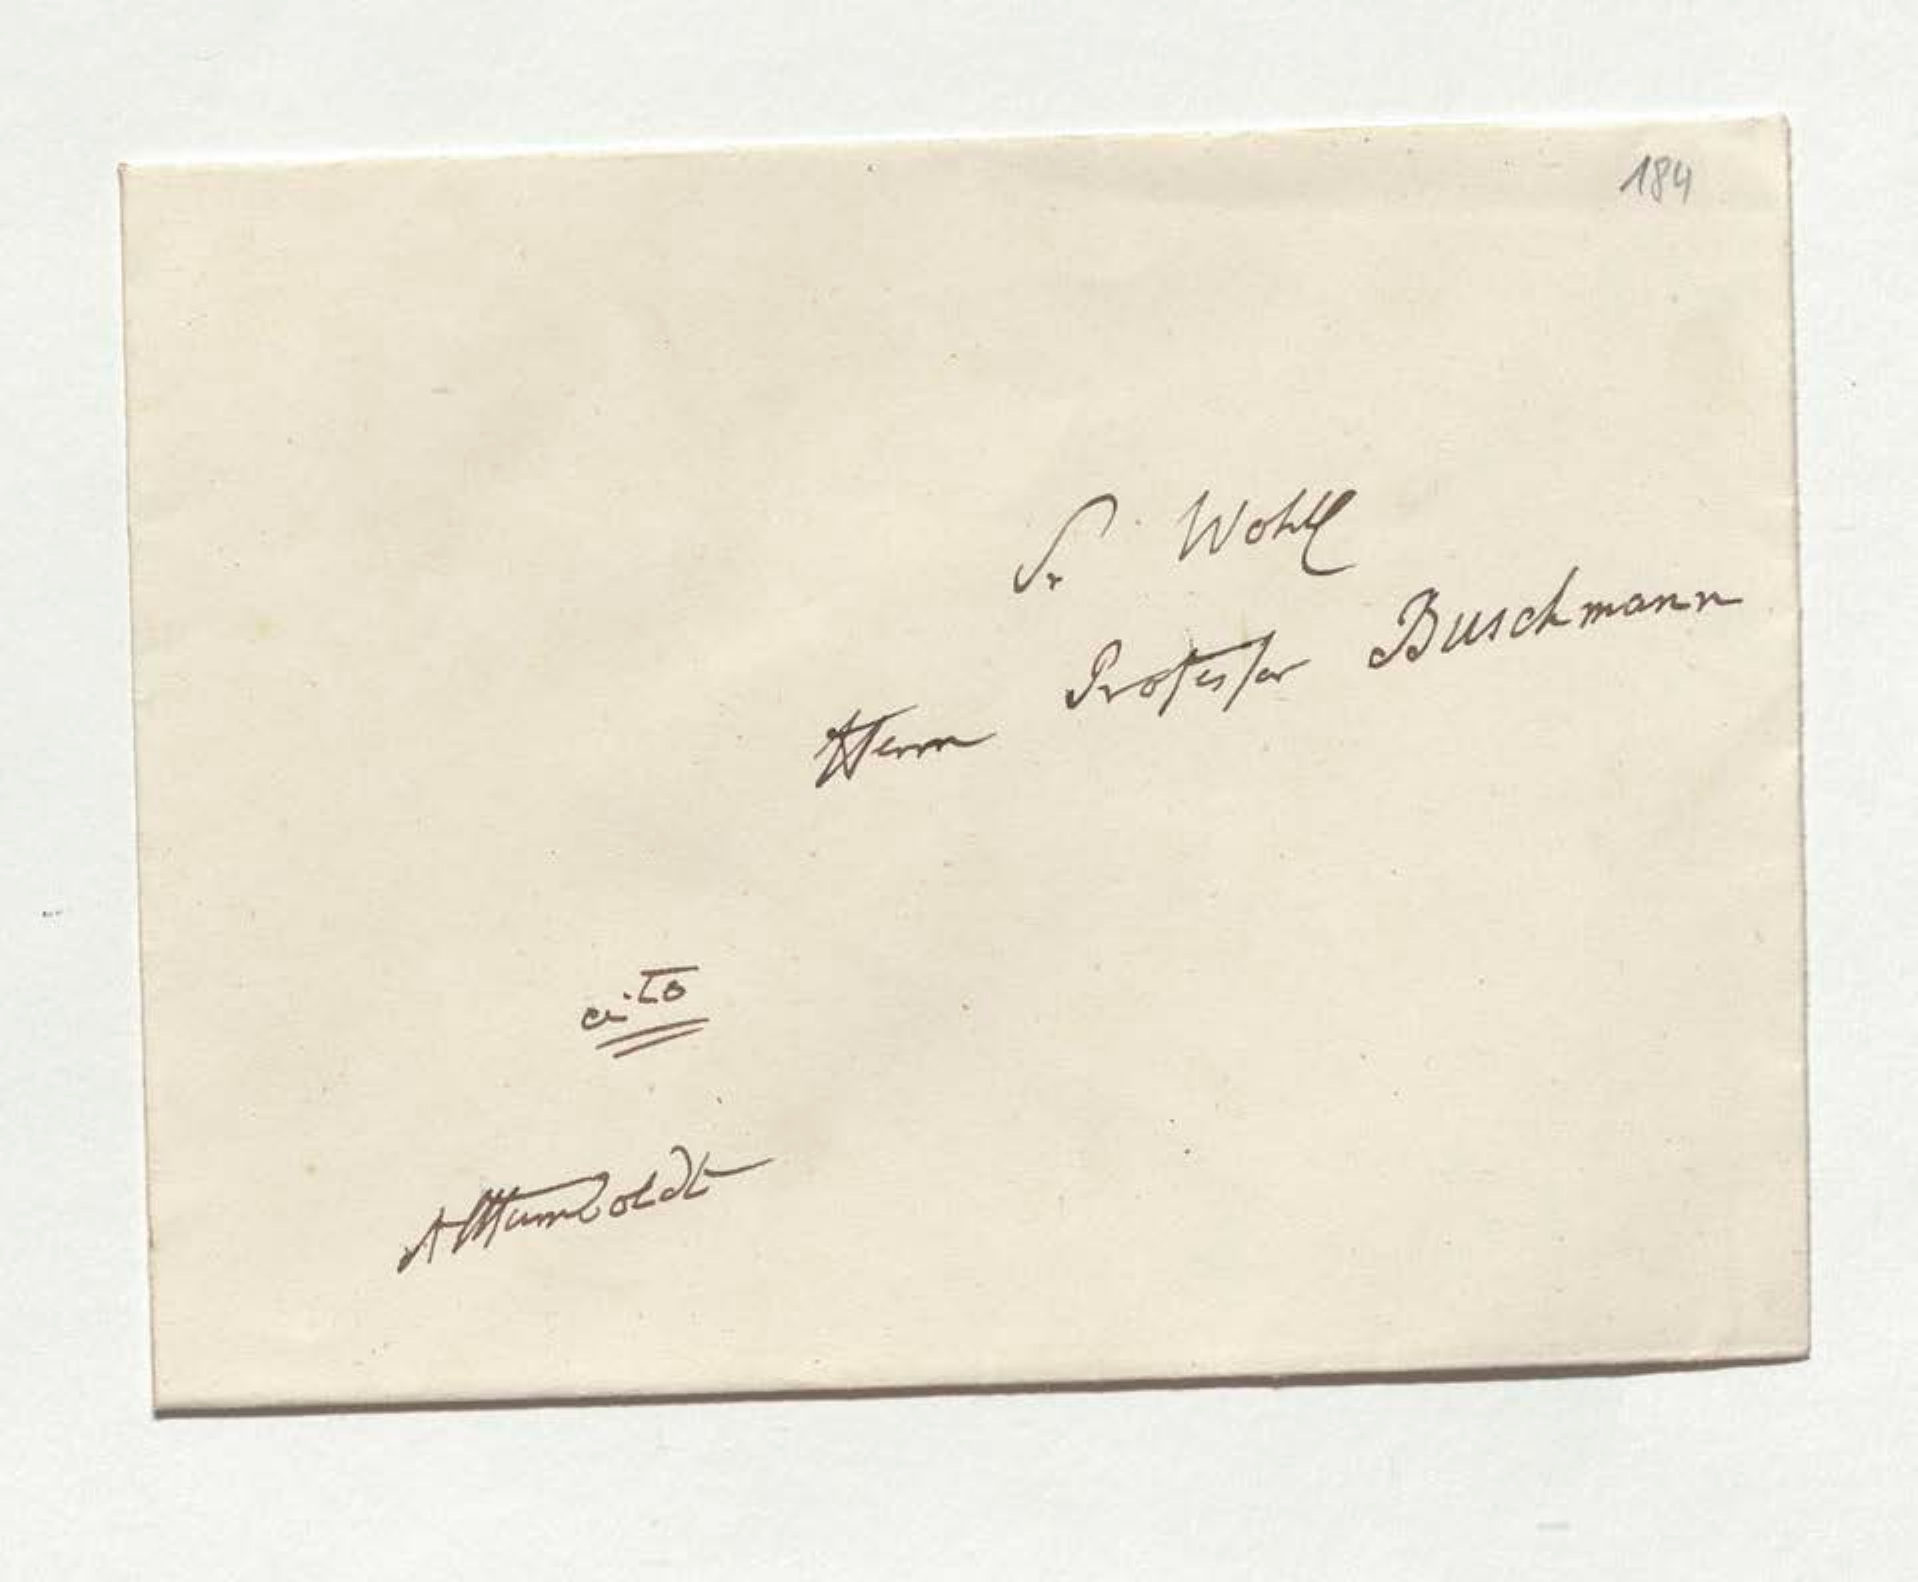 184
Sr Wohll
Herrn Professor Buschmann
cito
AvHumboldt